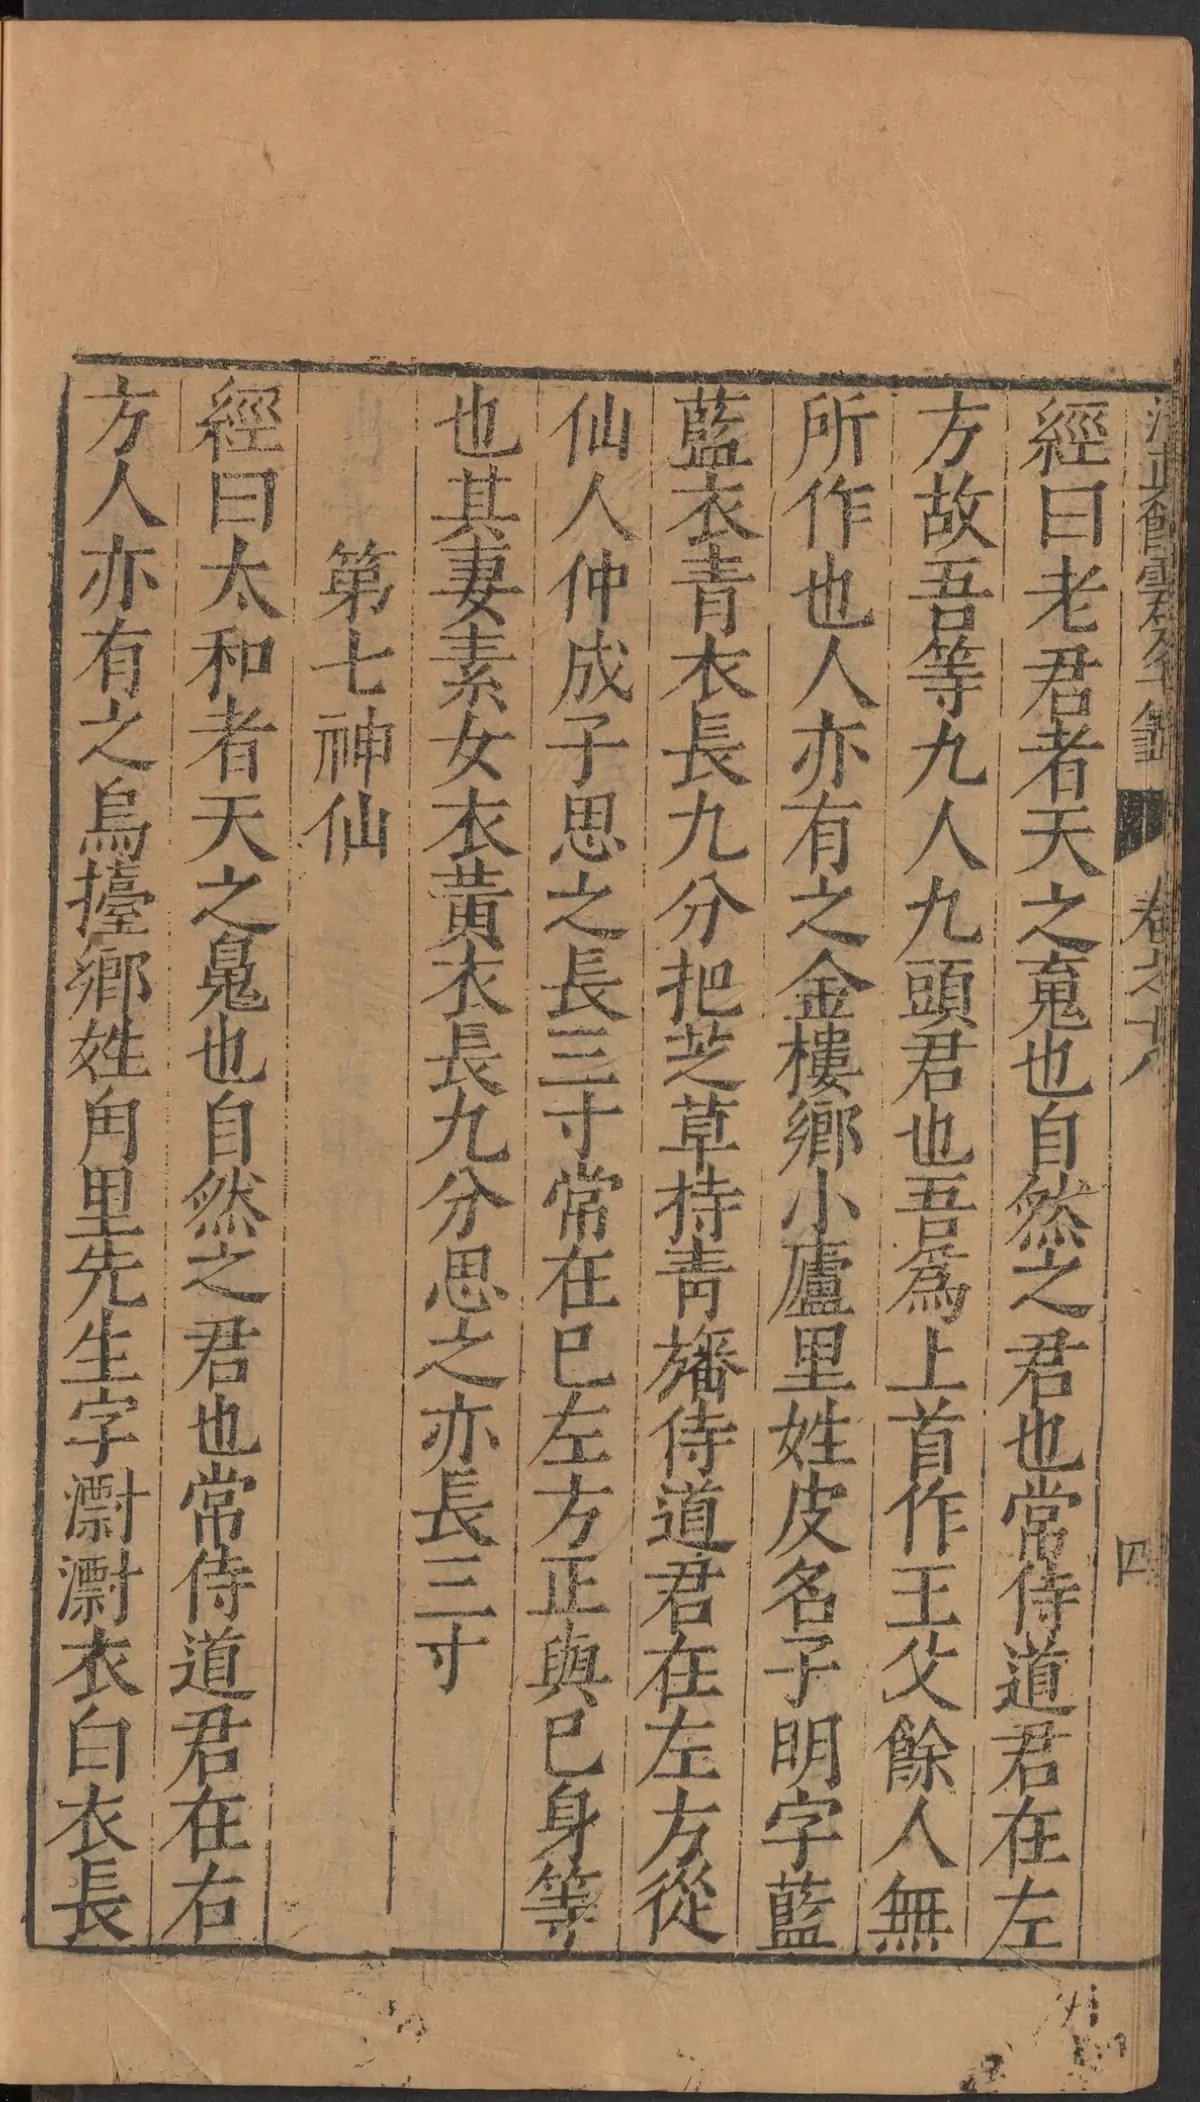 清真館雲笈七籤 卷之十八 四
經曰老君者天之䰟也自然之君也常侍道君在左
方故吾等九人九頭君也吾爲上首作王父餘人無
所作也人亦有之金樓鄉小廬里姓皮名子明字藍
藍衣青衣長九分把芝草持青旛侍道君在左方從
仙人仲成子思之長三寸常在巳左方正與巳身等
也其妻素女衣黃衣長九分思之亦長三寸
第七神仙
經曰太和者天之魄也自然之君也常侍道君在右
方人亦有之烏擡鄉姓角里先生字灪灪衣白衣長